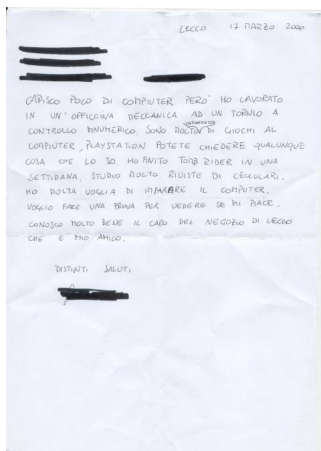 LECCO 17 MARZO 2000
CAPISCO POCO DI COMPIUTER PERO' HO LAVORATO
IN UN' OFFICCINA MECCANICA AD UN TORNIO A
CONTROLLO NNUMERICO. SONO MOLTO DI GIOCHI AL
COMPIUTER, PLAYSTATION POTETE CHIEDERE QUALUNQUE
COSA CHE LO SO. HO FINITO TOMB RIDER IN UNA
SETTIMANA. STUDIO MOLTO RIVISTE DI CELLULARI.
HO MOLTA VOGLIA DI IMPARARE IL COMPUTER.
VOGLIO FARE UNA PROVA PER VEDERE SE MI PIACE.
CONOSCO MOLTO BENE IL CAPO DEL NEGOZIO DI LECCO
CHE E MIO AMICO.
DISTINTI SALUTI